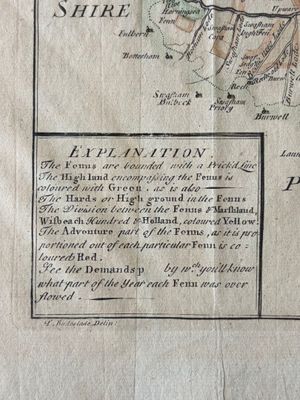 SHIRE
Horningsea
Fenn
Swafham
Fenn
Upware
Fulborn
Botteham
Rech
Swafham
Bulbeck
Swafham
Priory
Burwell
Burwell Lode
EXPLANATION
The Fenns are bounded with a Prick'd Line
The High land encompassing the Fenns is
coloured with Green. as is also
The Hards or High ground in the Fenns
The Division between the Fenns & Marshland,
Wisbeach Hundred & Holland, colour'd Yellow.
The Adventure part of the Fenns, as it is pro
portioned out of each particular Fenn is co-
loured Red.
See the Demands p by wch you'll know
what part of the Year each Fenn was over
flowed.
T. Badeslade, Delin: